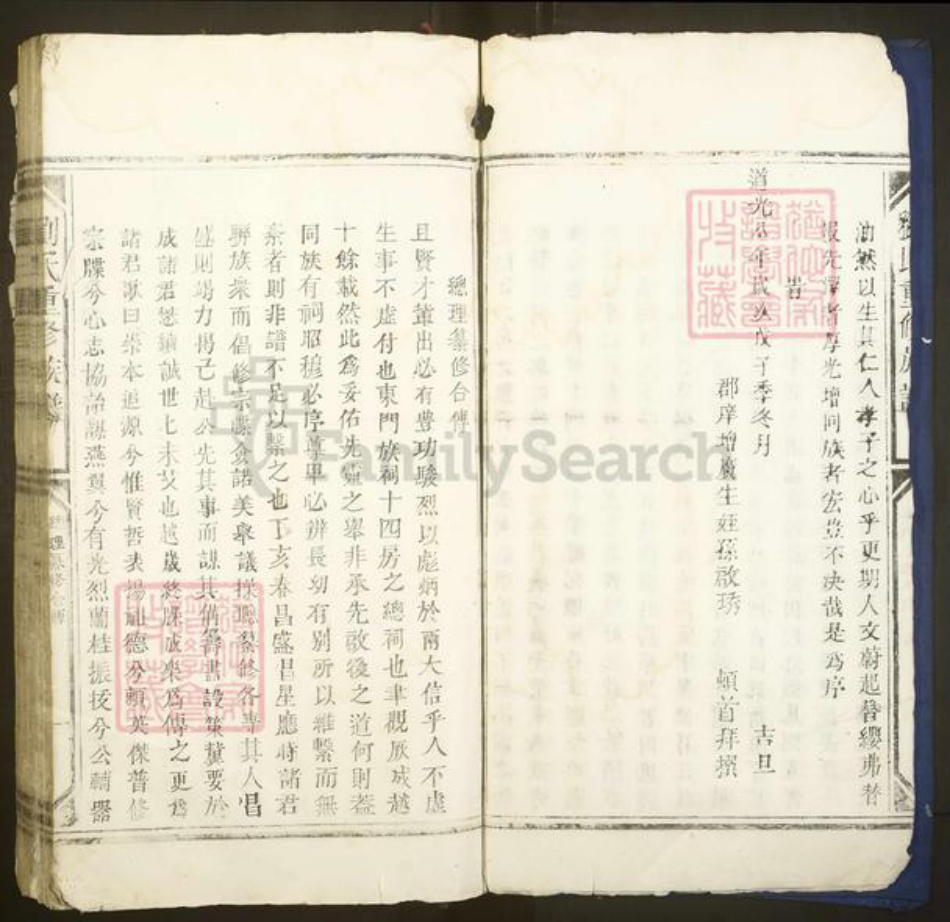 油然以生其仁人孝子之心乎更期人文蔚起簪纓弗替
先澤者厚光增同族者宏豈不决哉是爲序
旹
道光八年歲次戊子季冬月 吉旦
郡庠增廣生姪孫啟琇 頓首拜撰
劉氏重修族譜
總理纂修合傳
且賢才輩出必有豊功駿烈以彪炳於兩大信乎人不虛
生事不虛付也東門族祠十四房之總祠也聿觀厥成越
十餘載然此爲妥佑先靈之舉非承先啟後之道何則葢
同族有祠昭穆必序尊卑必辨長幼有別所以維繫而無
紊者則非譜不足以繫之也丁亥春昌盛昌星應時諸君
聯族衆而倡修宗牒僉諾美舉議採總纂修各專其人昌
盛則竭力揭己赴公先其事而謀其備籌畫設策冀要於
成諸君懋績誠世上未艾也越歲終牒成樂爲傳之更爲
諸君歌曰崇本追源兮惟賢哲表揚祖德兮頼英傑普修
宗牒兮心志協詒謀燕翼兮有光烈蘭桂振拔兮公輔器
FamilySearch